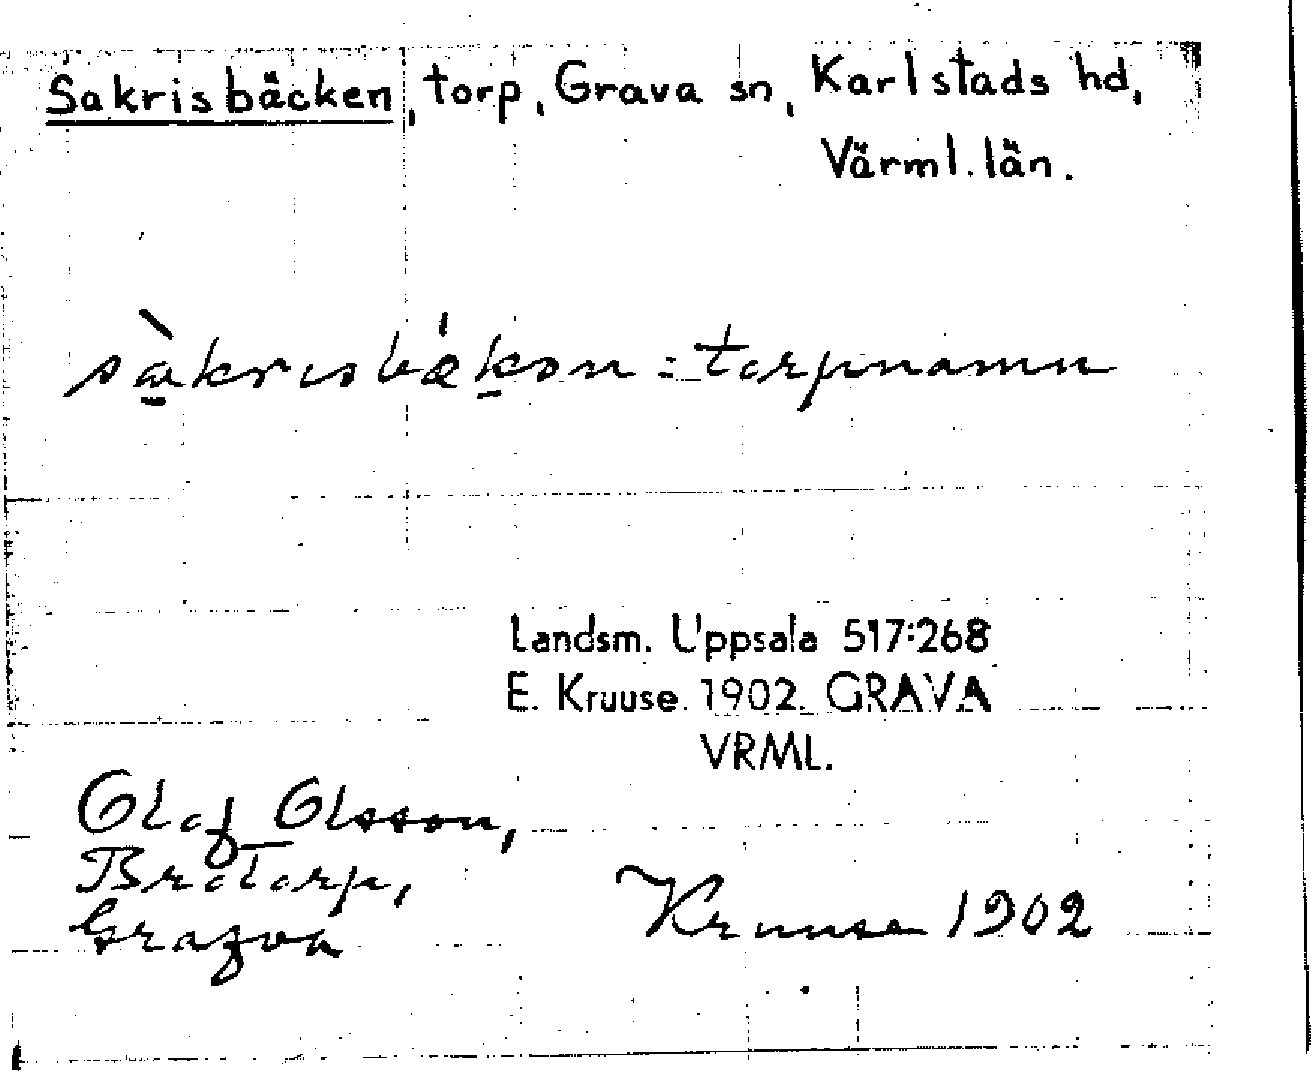 Sakrisbäcken, torp, Grava sn, Karlstads hd,
Värml. län.
sàkrisbǽkən : torpnamn
Landsm. Uppsala 517:268
E. Kruuse. 1902. GRAVA
VRML.
Olof Olsson,
Brotorp,
Grafva
Kruuse 1902